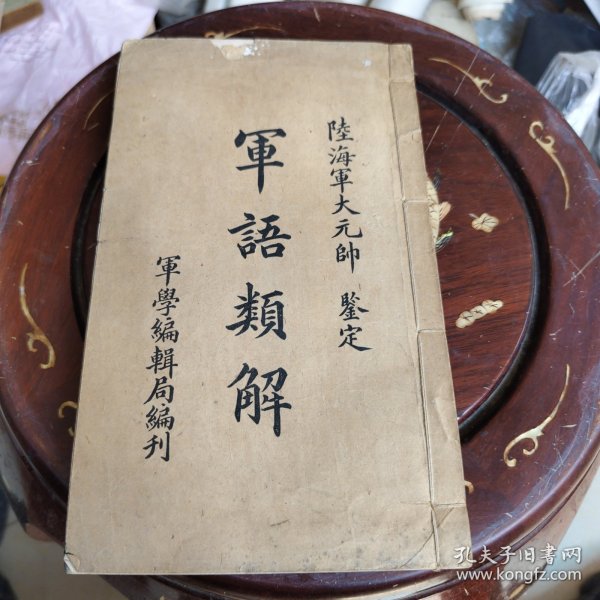 陸海軍大元帥 鑒定
軍語類解
軍學編輯局編刊
孔夫子旧书网
www.kongfz.com